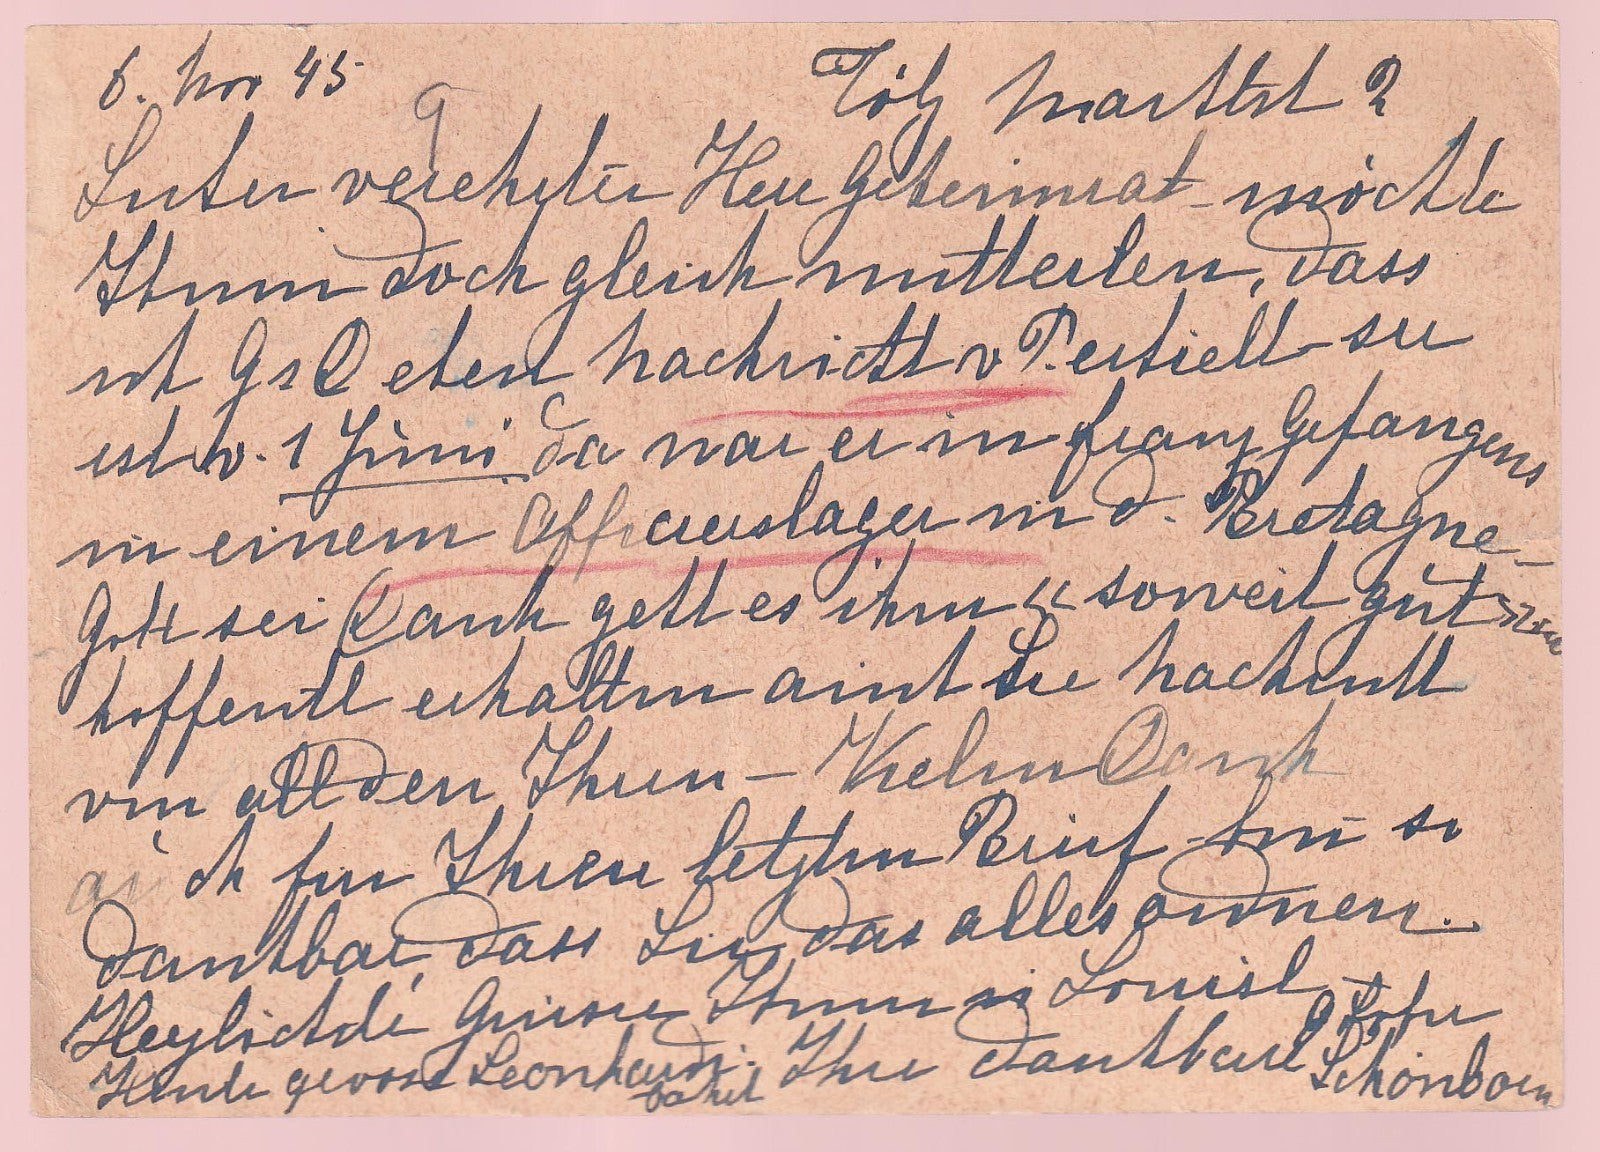 6. Nov 45 Tölz Marktstr 2
Guter verehrter Herr Geheimrat - möchte
Ihnen doch gleich mitteilen, dass
ich GsD eben Nachricht v
ist v. 1 Juni da war er in franz Gefangens
in einem Offizierslager in d. Bretagne -
Gott sei Dank geht es ihm soweit gut
hoffentl erhalten auch Sie Nachricht
von all den Ihren - Vielen Dank
auch für Ihren letzten Brief - bin so
dankbar, dass Sie das alles ordnen.
Herzlichste Grüsse Ihnen u Louisl -
Heute grosse Leonhardi fahrt Ihre dankbare Schönborn